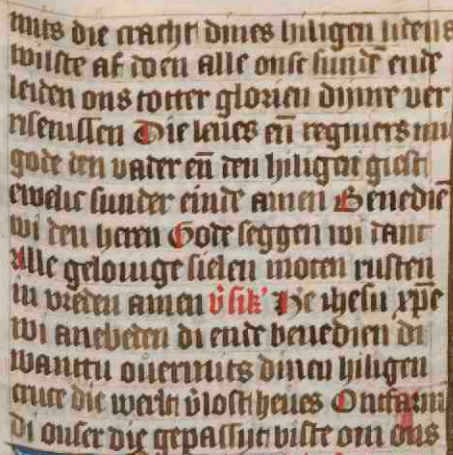 mits die cracht dines hiligen lidens
wilste af doen alle onse sunde ende
leiden ons totter glorien dijnre ver
risenissen Die leues eñ regniers mit
gode den vader eñ den hiligen giest
ewelic sunder einde amen Benediẽ
wi den heren Gode seggen wi danc
Alle gelouige sielen moten rusten
in vreden amen v̉sik' He ihesu xp̃e
wi anebeden di ende benedien di
wanttu ouermits dinen hiligen
cruce die werlt v̉lost heues Ontfarm
di onser die gepassijt biste om ons